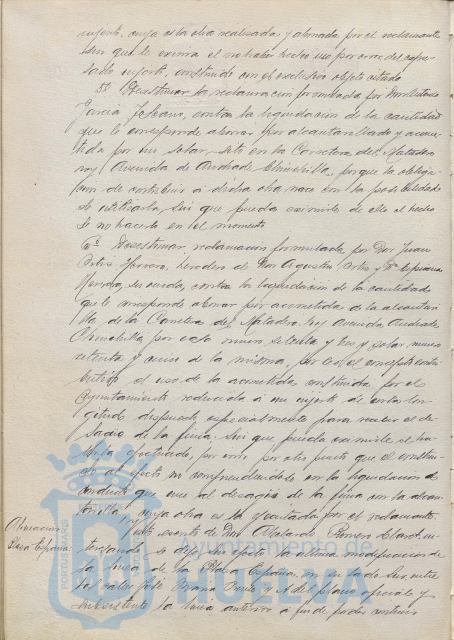 injerto, cuya está otra realizada y abonada por el reclamante
sin que le exima el no haber hecho uso por error del expre-
sado injerto, construido con el exclusivo objeto citado
5º Desestimar la reclamación formulada por Don
García contra la liquidación de la cantidad
que le corresponde abonar por alcantarillado y acome-
tida por un solar, sito en la Carretera del Matadero
hoy Avenida de Andrade Chinchilla, porque la obliga-
ción de contribuir á dicha obra nace con la posibilidad
de utilizarla, sin que pueda eximirle de ello el hecho
de no hacerlo en el momento
6º Desestimar reclamación formulada por Don Juan
heredero de Don Agustín y Dª
contra la liquidación de la cantidad
que le corresponde abonar por acometidas de la alcantari-
lla de la Carretera del Matadero, hoy Avenida Andrade
Chinchilla por casa número setenta y tres y solar número
setenta y cinco de la misma, por ser el concepto contri-
butivo el uso de la acometida construida por el
Ayuntamiento reducida á un injerto de lon-
gitud dispuesto especialmente para recibir el de-
sagüe de la finca, sin que pueda eximirle el ha-
por otro punto que el construi-
do al efecto no comprendiéndose en la liquidación el
conducto que une al desagüe de la finca con la alcan-
tarilla, cuya obra es la ejecutada por el reclamante.
Alineación
Plaza España:
escrito de Don Abelardo Romero
se deje sin efecto la última modificación de
la línea de la Plaza España, en su lado Sur, entre
las calles José y del plano oficial y
subsistente la línea anterior á fin de poder construir
Ayuntamiento de
HUELVA